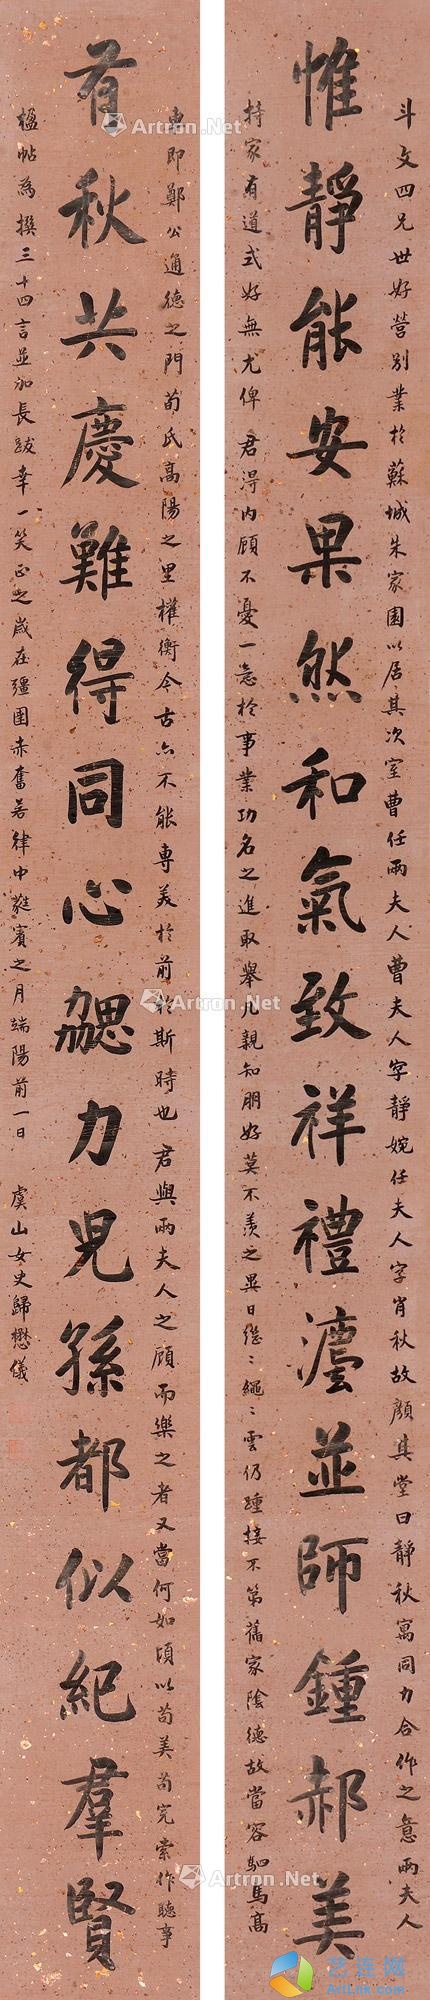 斗文四兄世好營別業於蘇城朱家園以居其次室曹任兩夫人曹夫人字靜婉任夫人字肖秋故顏其堂曰靜秋寓同力合作之意兩夫人
惟靜能安果然和氣致祥禮瀍並師鍾郝美
持家有道式好無尤俾君得內顧不憂一意於事業功名之進取舉凡親知朋好莫不羨之異日繼〻繩〻雲仍踵接不第舊家陰德故當容駟馬高
車即鄭公通德之門荀氏高陽之里權衡今古亦不能專美於前於斯時也君與兩夫人之顧而樂之者又當何如頃以苟美苟完索作聽事
有秋共慶難得同心勰力児孫都似紀羣賢
楹帖為撰三十四言並加長跋幸一笑正之歲在彊圉赤奮若律中蕤賓之月端陽前一日 虞山女史歸懋儀
Artron.Net
Artron.Net
Artron.Net
Artron.Net
Artron.Net
艺连网
Artlink.Com